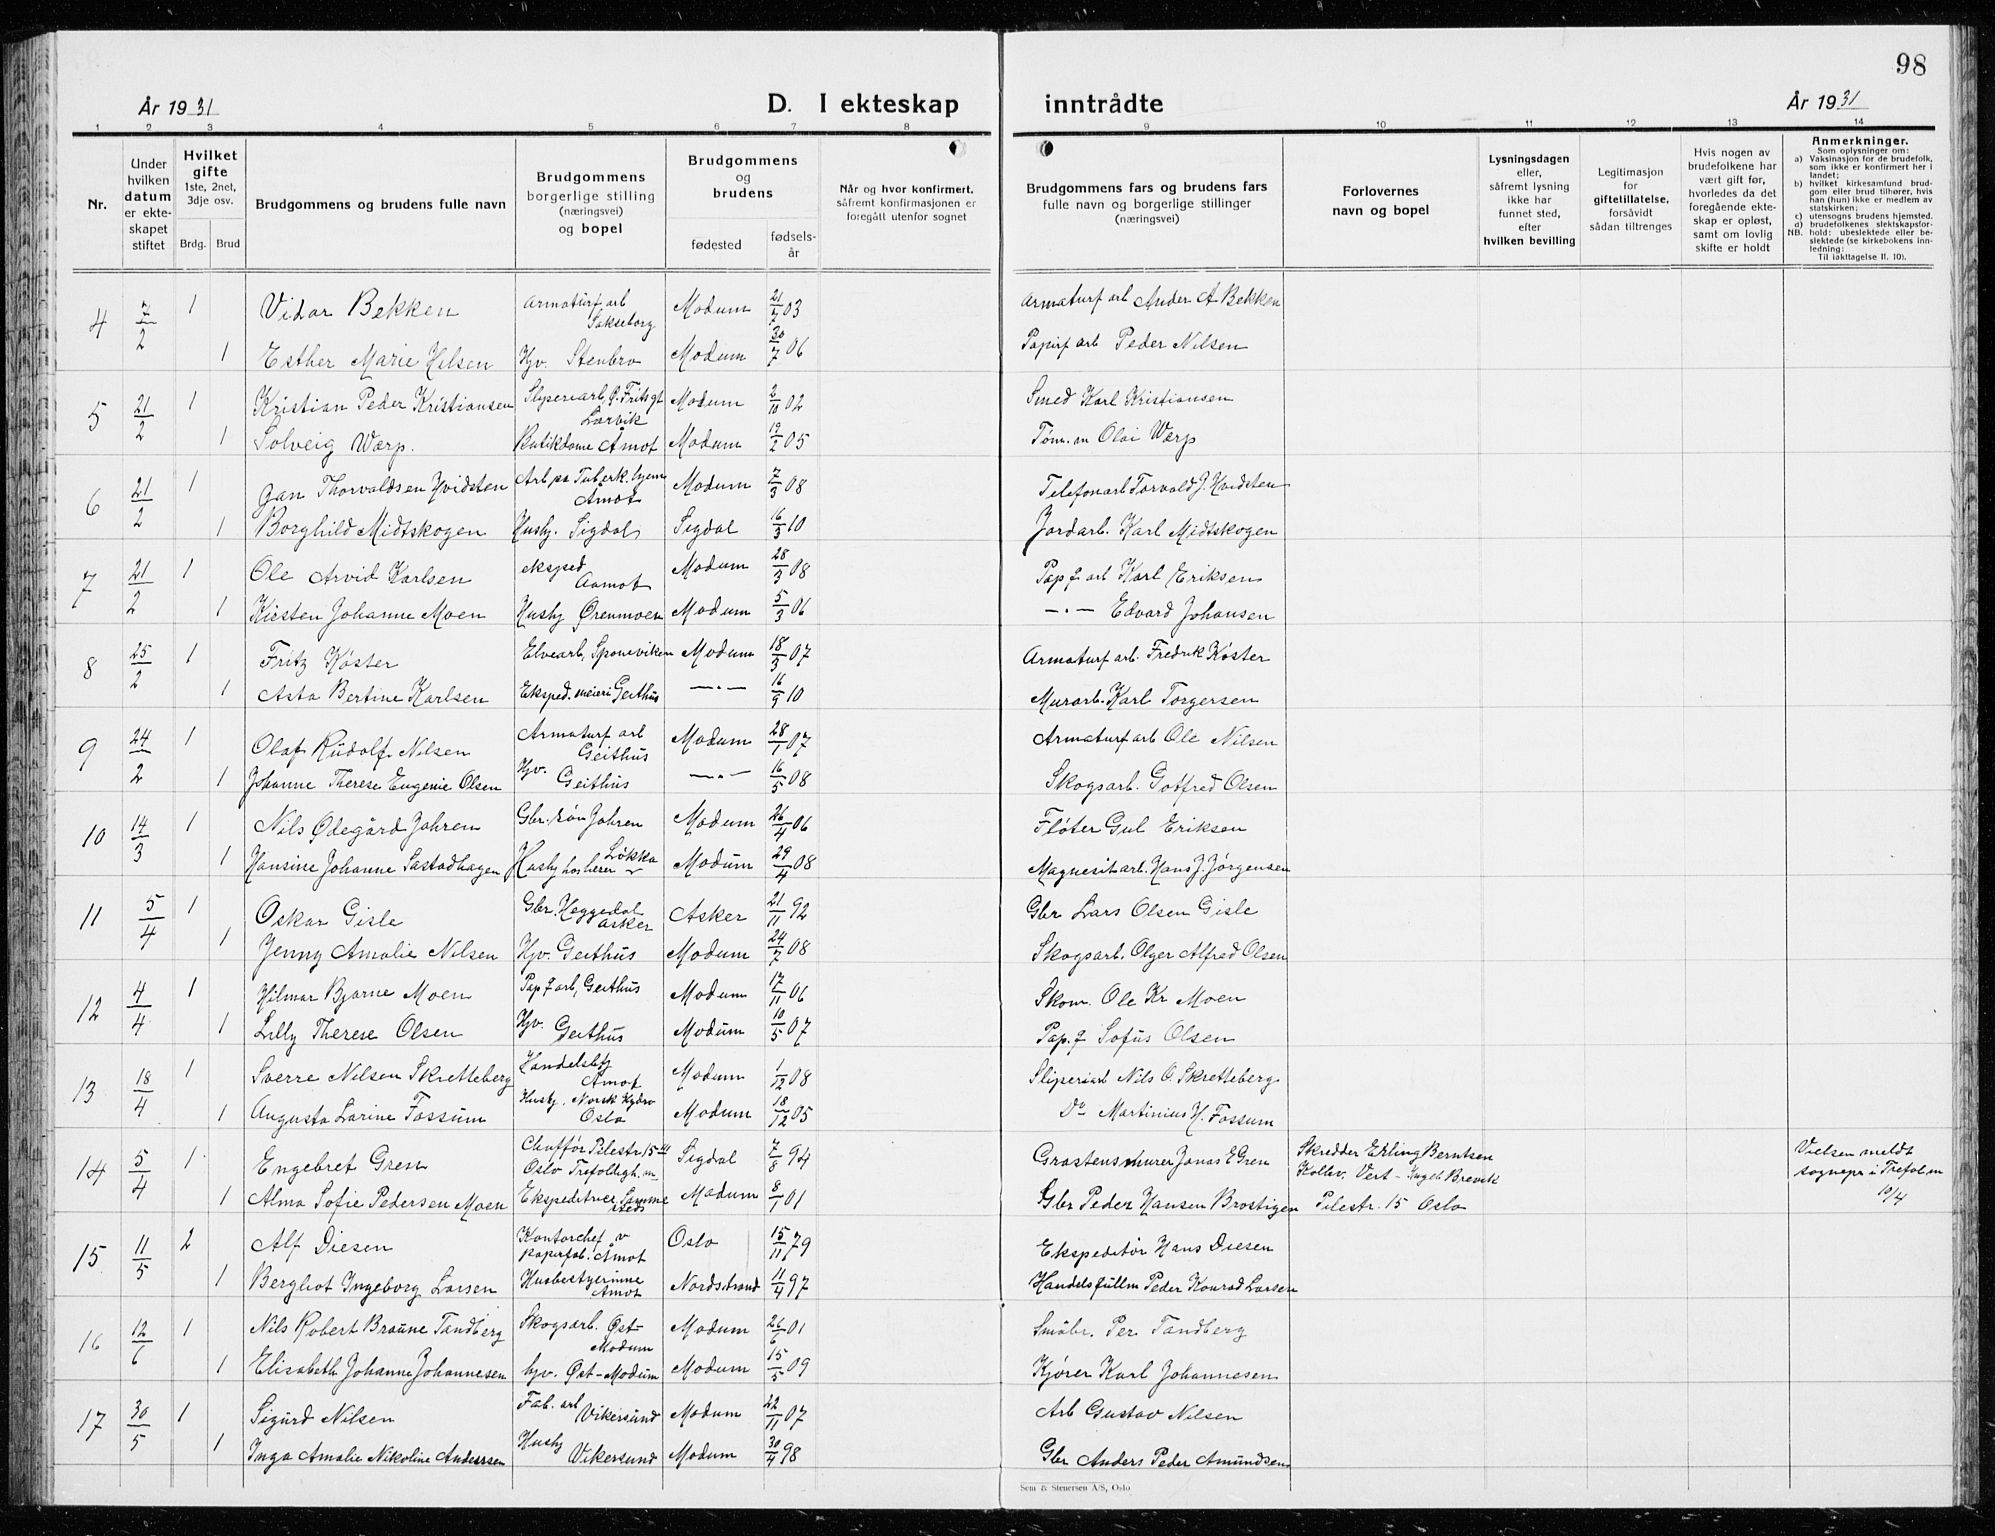 98
År 1931
D. I ekteskap
inntrådte
År 1931
1 2 3 4 5 6 7 8 9 10 11 12 13 14
Nr.
Under hvilken datum er ekteskapet stiftet
Hvilket gifte
1ste, 2net, 3dje osv.
Brdg. Brud
Brudgommens og brudens fulle navn
Brudgommens borgerlige stilling (næringsvei) og bopel
Brudgommens og brudens
fødested
fødselsår
Når og hvor konfirmert, såfremt konfirmasjonen er foregått utenfor sognet
Brudgommens fars og brudens fars fulle navn og borgerlige stillinger (næringsvei)
Forlovernes navn og bopel
Lysningsdagen eller, såfremt lysning ikke har funnet sted, efter hvilken bevilling
Legitimasjon for giftetillatelse, forsåvidt sådan tiltrenges
Hvis nogen av brudefolkene har vært gift før, hvorledes da det foregående ekteskap er opløst, samt om lovlig skifte er holdt
Anmerkninger.
Som oplysninger om:
a) Vaksinasjon for de brudefolk, som ikke er konfirmert her i landet;
b) hvilket kirkesamfund brudgom eller brud tilhører, hvis han (hun) ikke er medlem av statskirken;
c) utensogns brudens hjemsted.
d) brudefolkenes slektskapsforhold: ubeslektede eller beslektede (se kirkebokens innledning:
NB.
Til iakttagelse II. 10).
4 7/2 1 Vidar Bekken Armaturf arb Modum 21/7 03 Armaturf arb Ander A Bekken
1 Esther Marie Nilsen Hjv. Stenbro Modum 30/7 06 Papirf arb Peder Nilsen
5 21/2 1 Kristian Peder Kristiansen Sliperiarb, Larvik Modum 2/10 02 Smed Karl Kristiansen
1 Solveig Warp. Butikdame Åmot Modum 19/2 05 Tøm.m Olai Warp
6 21/2 1 Jan Thorvaldsen Hvidsten Arb på Tuberk.hjem Åmot Modum 7/3 08 Telefonarb Torvald J. Hvidsten
1 Borghild Midtskogen Hushj. Sigdal Sigdal 16/3 10 Jordarb. Karl Midtskogen
7 21/2 1 Ole Arvid Karlsen eksped Aamot Modum 28/3 08 Pap f arb Karl Eriksen
1 Kirsten Johanne Moen Hushj Ørenmoen Modum 5/3 06 —·— Edvard Johansen
8 25/2 1 Fritz Køster Elvearb, Sponeviken Modum 18/3 07 Armaturf arb. Fredrik Køster
1 Asta Bertine Karlsen Eksped. meieri Geithus —·— 16/9 10 Murarb. Karl Torgersen
9 24/2 1 Olaf Rudolf Nilsen Armaturf arb Geithus Modum 28/1 07 Armaturf arb Ole Nilsen
1 Johanne Therese Eugenie Olsen Hjv. Geithus —·— 16/5 08 Skogsarb. Gotfred Olsen
10 14/3 1 Nils Ødegård Jahren Gbr. søn Jahren Modum 26/4 06 Fløter Gul Eriksen
1 Hansine Johanne Sastadhagen Hushj Løkka Modum 29/4 08 Magnesitarb. Hans J. Jørgensen
11 5/4 1 Oskar Gisle Gbr. Heggedal Asker Asker 21/11 92 Gbr Lars Olsen Gisle
1 Jenny Amalie Nilsen Hjv. Geithus Modum 24/7 08 Skogsarb. Olger Alfred Olsen
12 4/4 1 Hilmar Bjarne Moen Pap f arb, Geithus Modum 17/11 06 Skom. Ole Kr Moen
1 Lilly Therese Olsen Hjv. Geithus Modum 10/5 07 Pap. f Sofus Olsen
13 18/4 1 Sverre Nilsen Skretteberg Handelsbtj Åmot Modum 1/12 08 Sliperiarb Nils O. Skretteberg
1 Augusta Larine Fossum Hushj. Norsk Hydro Oslo Modum 18/12 05 Do Martinius H. Fossum
14 5/4 1 Engebret Gren Chaffør Pilestr. 15 III Oslo Trefoldigh.m Sigdal 7/8 94 Gråstensmurer Jonas E Gren Skredder Erling Berntsen Vielsen meldt
Kollev. Vert - Ingeb Brevik sognepr i Trefol.m
1 Alma Sofie Pedersen Moen Ekspeditrice Samme sted Modum 8/1 01 Gbr Peder Hansen Brostigen Pilestr. 15 Oslo 10/4
15 11/5 2 Alf Diesen Kontorchef v papirfab. Åmot Oslo 15/11 79 Ekspeditør Hans Diesen
1 Bergliot Ingeborg Larsen Husbestyerinne Åmot Nordstrand 11/4 97 Handelsfullm Peder Konrad Larsen
16 12/6 1 Nils Robert Braune Tandberg Skogsarb. Øst-Modum Modum 26/6 01 Småbr. Per Tandberg
1 Elisabeth Johanne Johannesen hjv. Øst-Modum Modum 15/5 09 Kjører Karl Johannesen
17 30/5 1 Sigurd Nilsen Fab. arb Vikersund Modum 22/11 07 Arb Gustav Nilsen
1 Inga Amalie Nikoline Anderssen Hushj Vikersund Modum 30/4 98 Gbr Anders Peder Amundsen
Sem & Stenersen A/S, Oslo